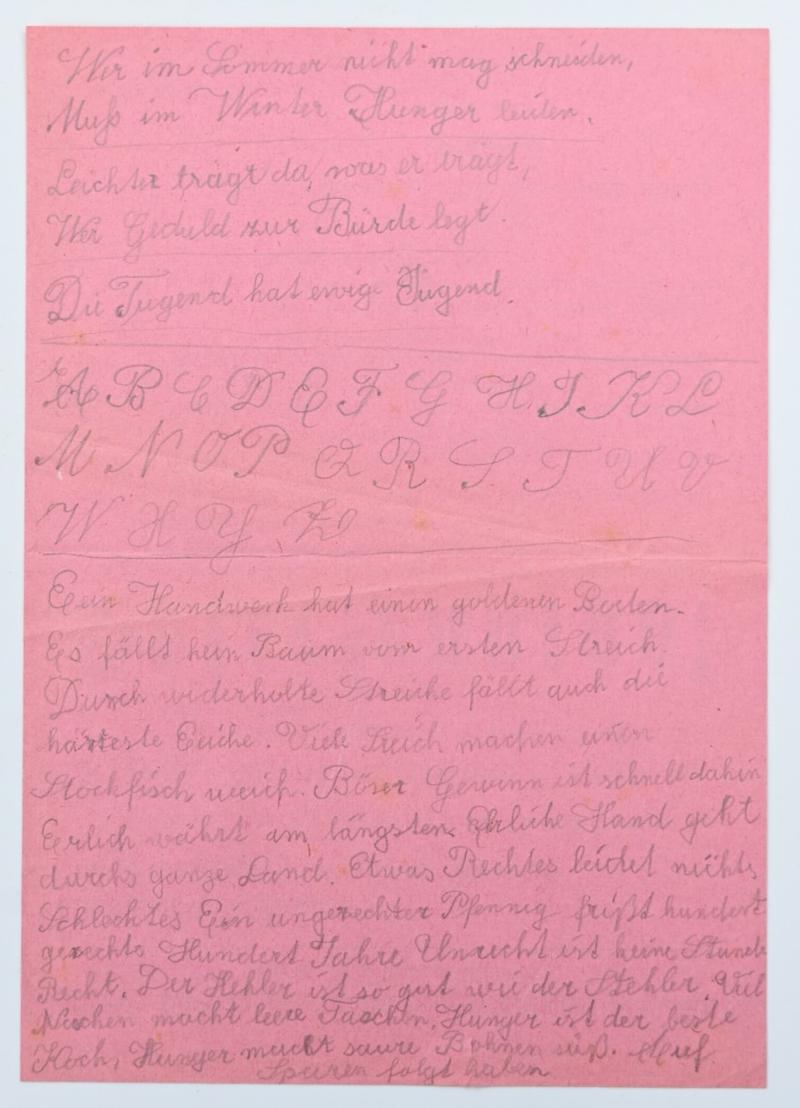 Wer im Sommer nicht mag schneiden,
Muß im Winter Hunger leiden.
Leichter trägt da, was er trägt,
Wer Geduld zur Bürde legt.
Die Tugend hat ewige Jugend.
A B C D E F G H I K L
M N O P Q R S T U V
W X Y Z
Ein Handwerk hat einen goldenen Boden.
Es fällt kein Baum vom ersten Streich.
Durch widerholte Streiche fällt auch die
härteste Eiche. Viele Streich machen einen
Stockfisch weich. Böser Gewinn ist schnell dahin
Erlich währt am längsten. Ehrliche Hand geht
durchs ganze Land. Etwas Rechtes leidet nichts
Schlechtes Ein ungerechter Pfennig frißt hundert
gerechte Hundert Jahre Unrecht ist keine Stunde
Recht. Der Hehler ist so gut wie der Stehler. Viel
Naschen macht leere Taschen. Hunger ist der beste
Koch, Hunger macht saure Bohnen süß. Auf
Sparen folgt haben